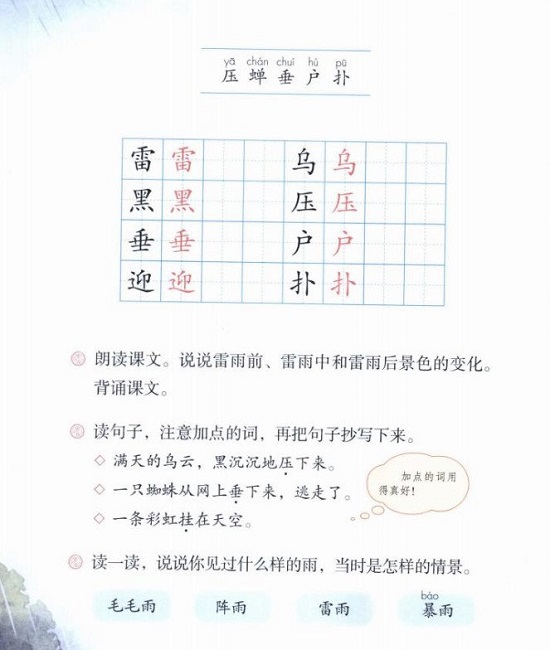 yā chán chuí hù pū
压 蝉 垂 户 扑
雷 雷 乌 乌
黑 黑 压 压
垂 垂 户 户
迎 迎 扑 扑
朗读课文。说说雷雨前、雷雨中和雷雨后景色的变化。
背诵课文。
读句子，注意加点的词，再把句子抄写下来。
◇ 满天的乌云，黑沉沉地压下来。
◇ 一只蜘蛛从网上垂下来，逃走了。
◇ 一条彩虹挂在天空。
加点的词用
得真好！
读一读，说说你见过什么样的雨，当时是怎样的情景。
bào
毛毛雨 阵雨 雷雨 暴雨